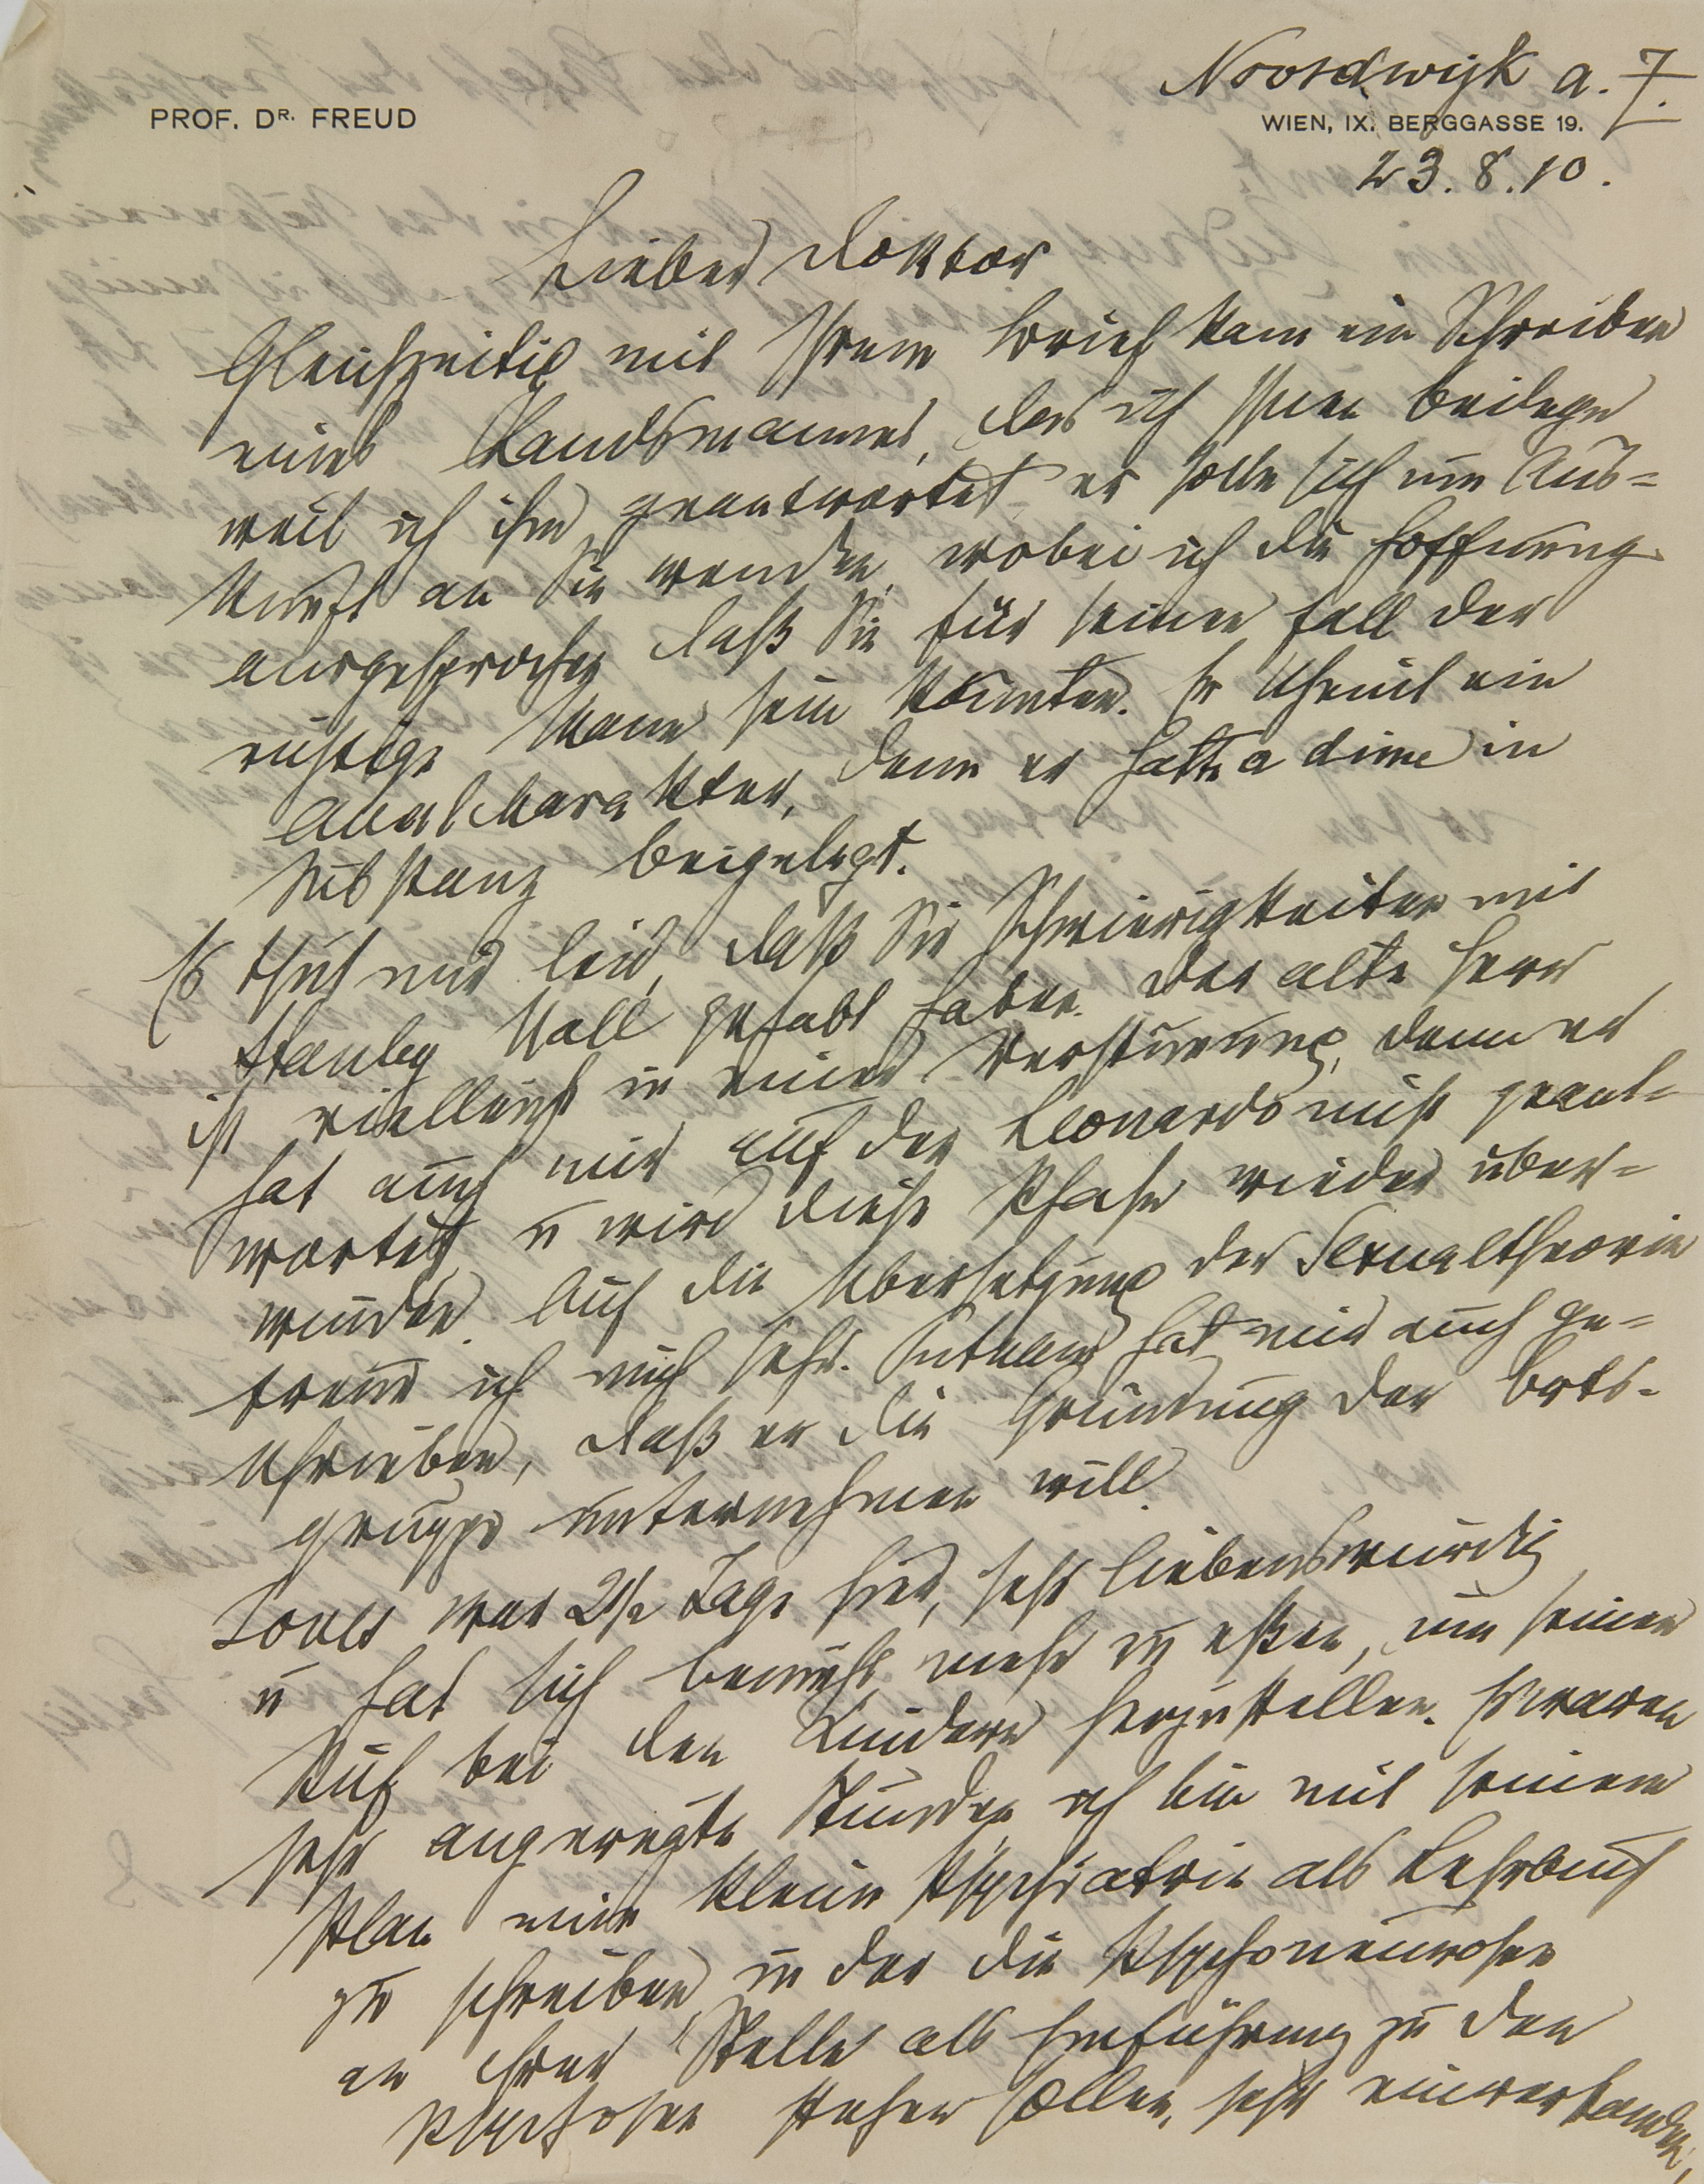 Noordwijk a. Z.
PROF. DR. FREUD
WIEN, IX. BERGGASSE 19.
23.8.10.
Lieber Doktor
Gleichzeitig mit Ihrem Brief kam ein Schreiben
eines Landsmannes, das ich Ihnen beilege
weil ich ihm geantwortet er solle sich um Aus=
kunft an Sie wenden, wobei ich die Hoffnung
ausgesprochen daß Sie für seinen Fall der
richtige Mann sein könnten. Er scheint ein
Analcharakter, denn er hatte a dime in
Substanz beigelegt.
Es thut mir leid, daß Sie Schwierigkeiten mit
Stanley Hall gehabt haben. Der alte Herr
ist vielleicht in einer Verstimmung, denn er
hat auch mir auf den Leonardo nicht geant=
wortet, u wird diese Phase wieder über=
winden. Auf die Übersetzung der Sexualtheorie
freue ich mich sehr. Putnam hat mir auch ge=
schrieben, daß er die Gründung der Orts-
gruppe unternehmen will.
Jones war 2½ Tage hier, sehr liebenswürdig
u hat sich bemüht mehr zu eßen, um seinen
Ruf bei den Kindern herzustellen. Es waren
sehr angeregte Stunden, ich bin mit seinem
Plan eine kleine Psychiatrie als Lehrbuch
zu schreiben, in der die Psychoneurosen
an ihrer Stelle als Einführung zu den
Psychosen stehen sollen, sehr einverstanden,